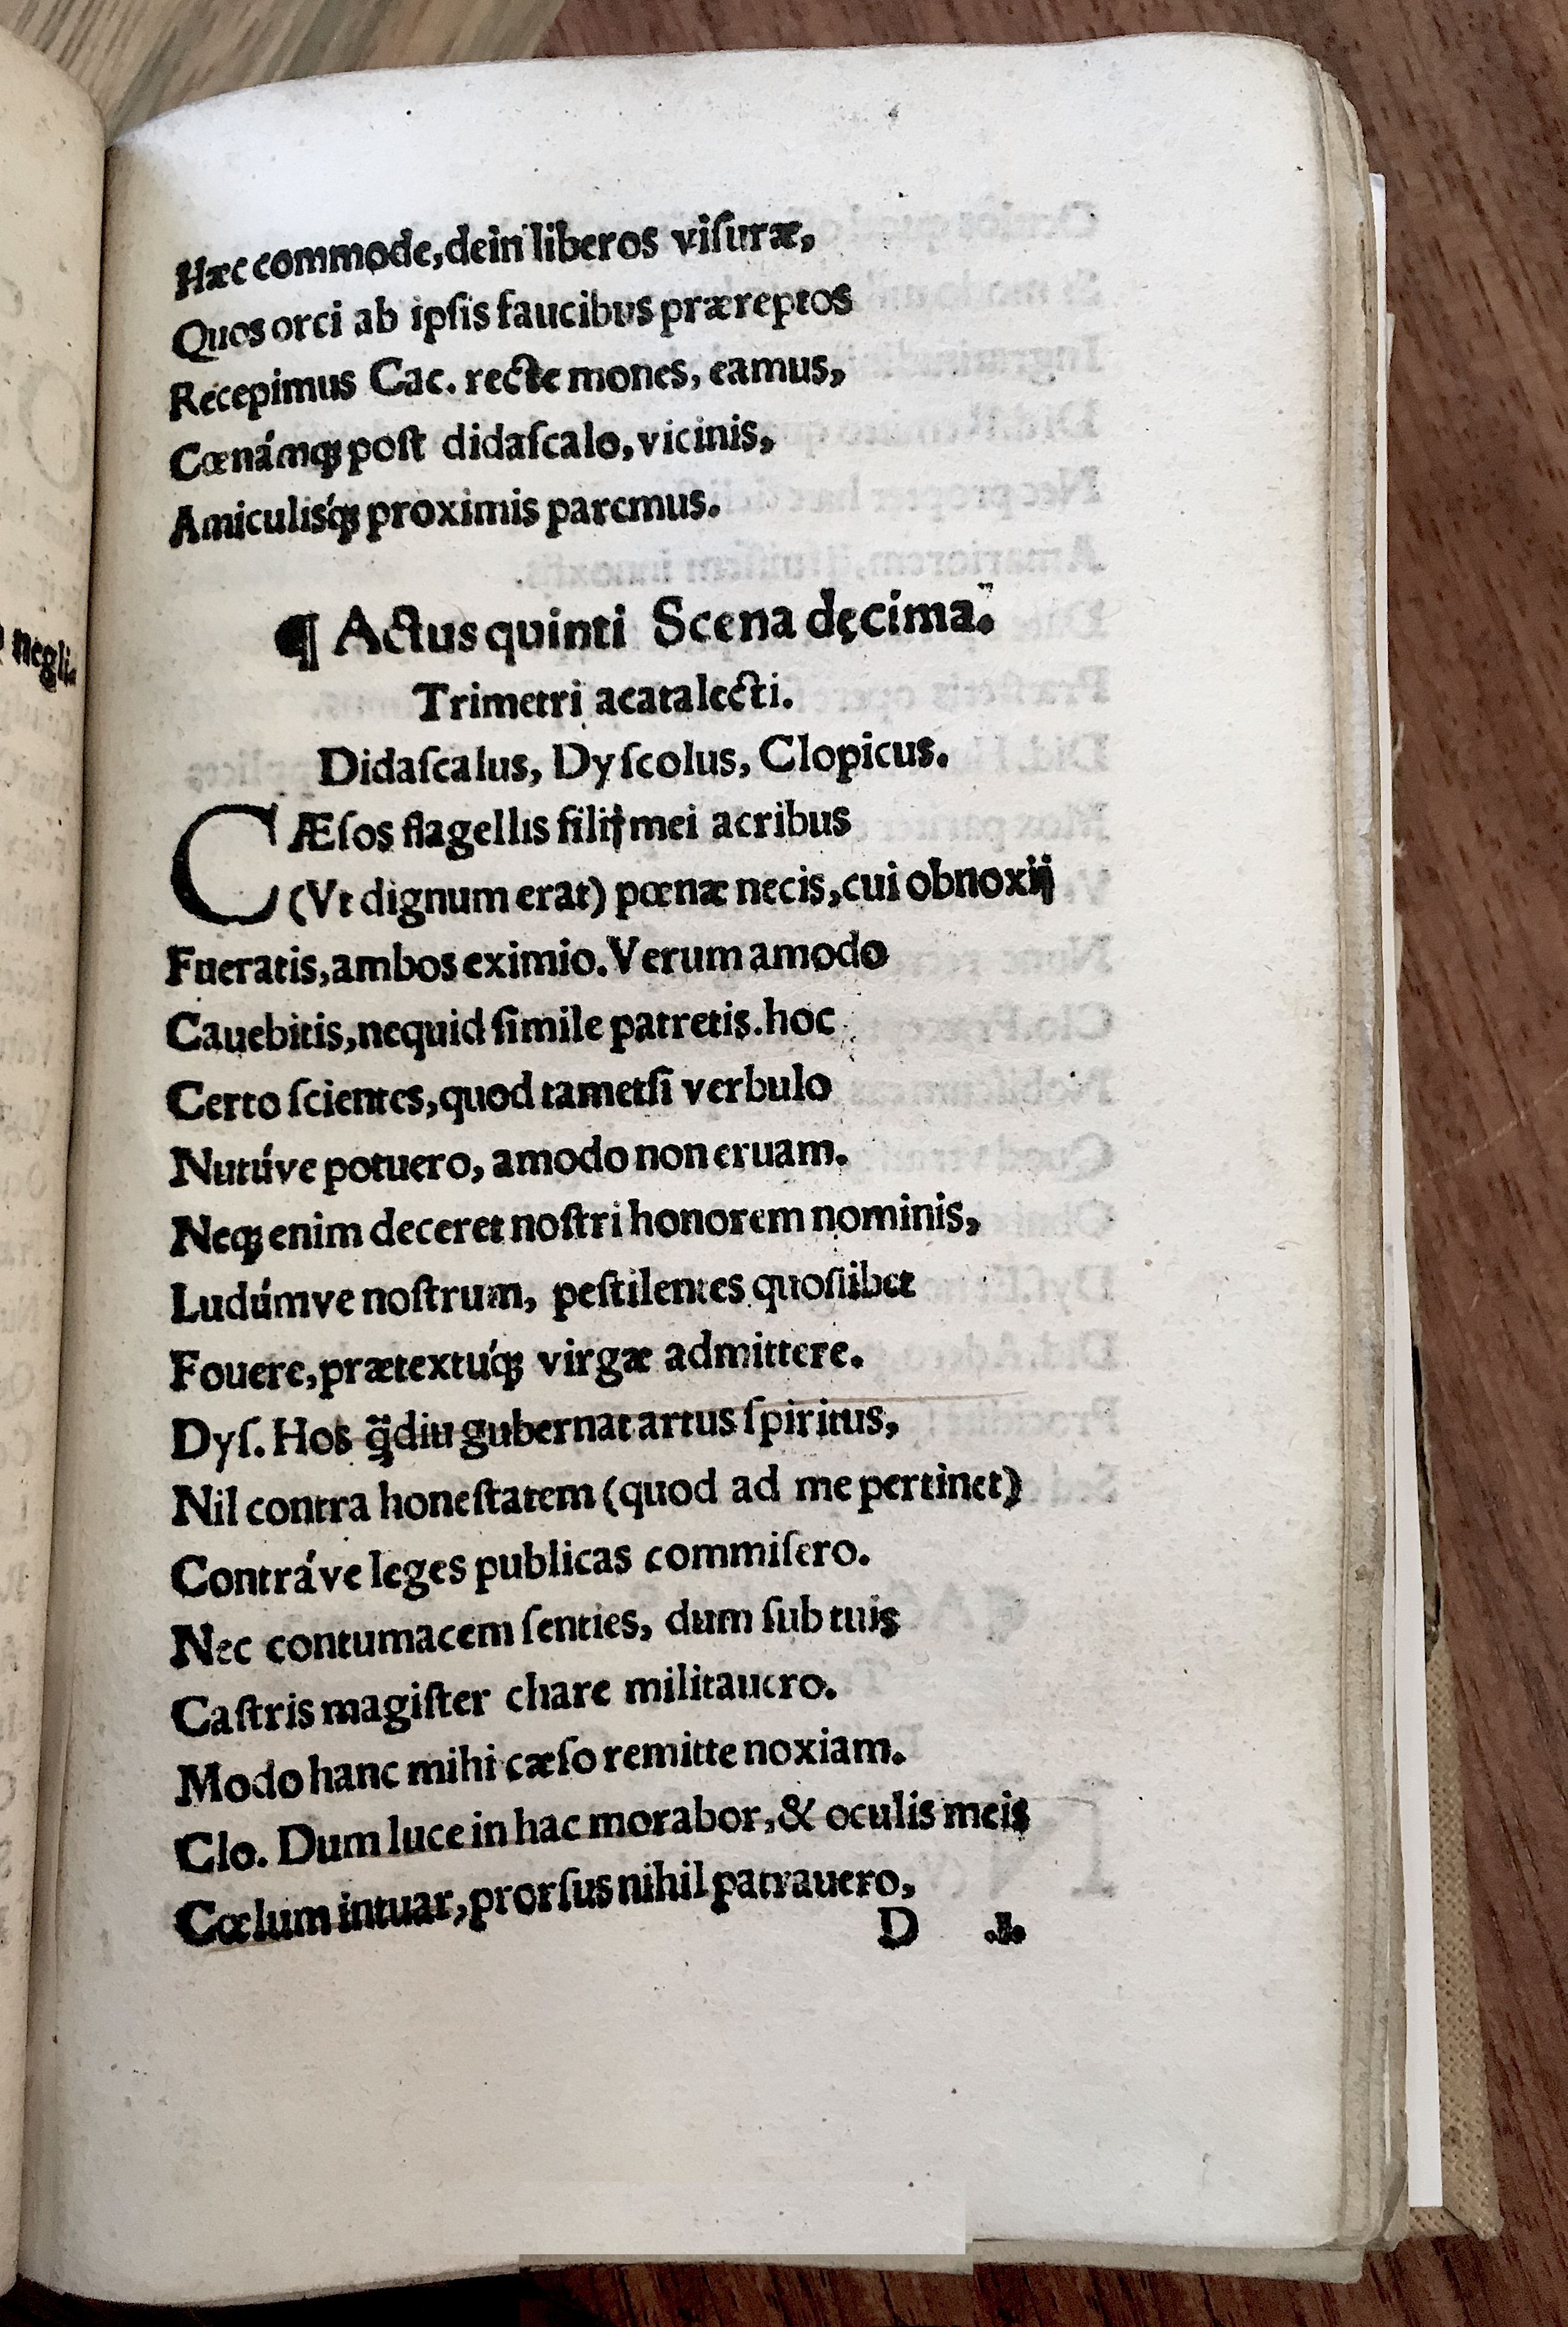 Hæc commode, dein liberos viſuræ,
Quos orci ab ipſis faucibus præreptos
Recepimus Cac. recte mones, eamus,
Cœnámqꝫ poſt didaſcalo, vicinis,
Amiculisq́ꝫ proximis paremus.
¶ Actus quinti Scena dęcima.
Trimetri acatalecti.
Didaſcalus, Dyſcolus, Clopicus.
CÆſos flagellis filij mei acribus
(Vt dignum erat) pœnæ necis, cui obnoxij
Fueratis, ambos eximio. Verum amodo
Cauebitis, nequid ſimile patretis. hoc
Certo ſcientes, quod tametſi verbulo
Nutúve potuero, amodo non eruam.
Neqꝫ enim deceret noſtri honorem nominis,
Ludúmve noſtrum, peſtilentes quoſlibet
Fouere, prætextuq́ꝫ virgæ admittere.
Dyſ. Hos q̈diu gubernat artus ſpiritus,
Nil contra honeſtatem (quod ad me pertinet)
Contráve leges publicas commiſero.
Nec contumacem ſenties, dum ſub tuis
Caſtris magiſter chare militauero.
Modo hanc mihi cæſo remitte noxiam.
Clo. Dum luce in hac morabor, & oculis meis
Cœlum intuar, prorſus nihil patrauero,
D .j.
negli-